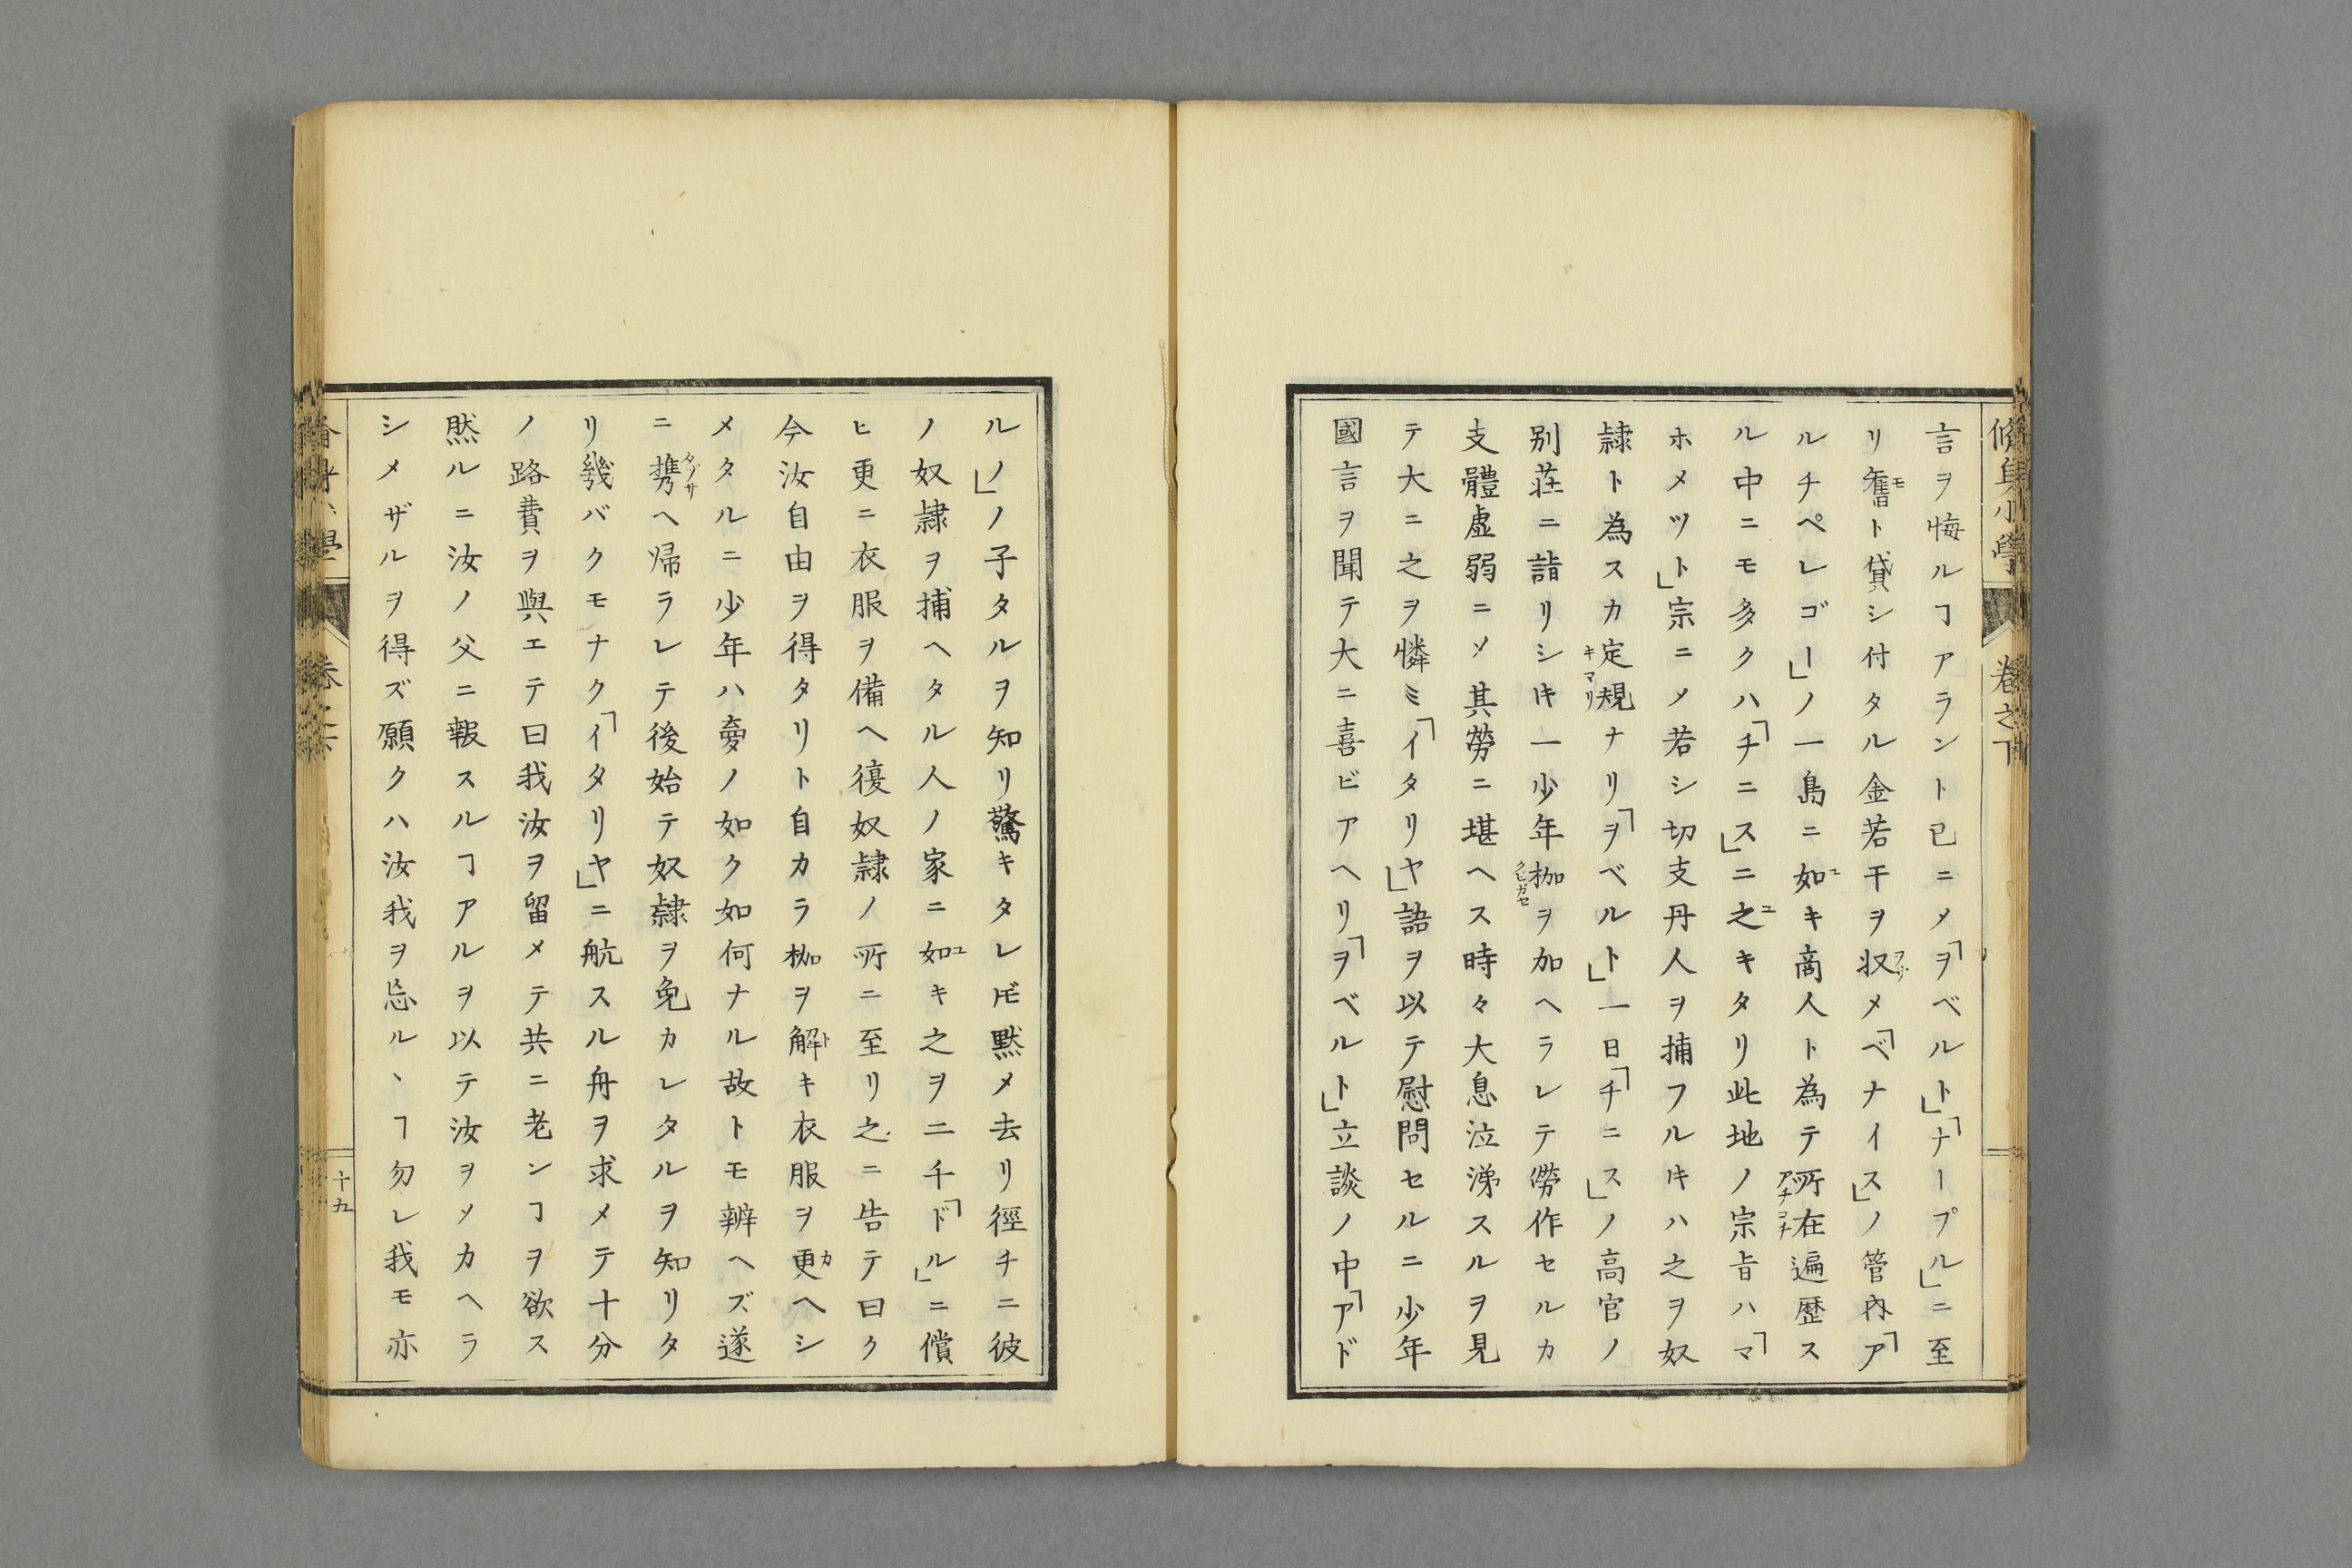 修身小學
卷之下
言ヲ悔ルヿアラント已ニメ「ヲベルト」「ナープル」ニ至
リ舊ト貸シ付タル金若干ヲ収メ「ベナイス」ノ管內「ア
モ
ルチペレゴー」ノ一島ニ如キ商人ト為テ所在遍歷ス
ユ
アチコチ
ル中ニモ多クハ「チニス」ニ之キタリ此地ノ宗旨ハ「マ
ユ
ホメツト」宗ニメ若シ切支丹人ヲ捕フルキハ之ヲ奴
隷ト為スカ定規ナリ「ヲベルト」一日「チニス」ノ高官ノ
キマリ
别莊ニ詣リシキ一少年枷ヲ加ヘラレテ勞作セルカ
クビガセ
支體虚弱ニメ其勞ニ堪ヘス時々大息泣涕スルヲ見
テ大ニ之ヲ憐ミ「イタリヤ」語ヲ以テ慰問セルニ少年
國言ヲ聞テ大ニ喜ビアヘリ「ヲベルト」立談ノ中「アド
ルノ」ノ子タルヲ知リ驚キタレ𪜈黙メ去リ徑チニ彼
ノ奴隷ヲ捕ヘタル人ノ家ニ如キ之ヲ二千「ドル」ニ償
ユ
ヒ更ニ衣服ヲ備ヘ復奴隷ノ所ニ至リ之ニ告テ曰ク
今汝自由ヲ得タリト自カラ枷ヲ解キ衣服ヲ更ヘシ
ト
カ
メタルニ少年ハ夢ノ如ク如何ナル故トモ辨ヘズ遂
ニ携ヘ帰ラレテ後始テ奴隷ヲ免カレタルヲ知リタ
タヅサ
リ幾バクモナク「イタリヤ」ニ航スル舟ヲ求メテ十分
ノ路費ヲ與エテ曰我汝ヲ留メテ共ニ老ンヿヲ欲ス
然ルニ汝ノ父ニ報スルヿアルヲ以テ汝ヲメカヘラ
シメザルヲ得ズ願クハ汝我ヲ忘ルヽヿ勿レ我モ亦
十九